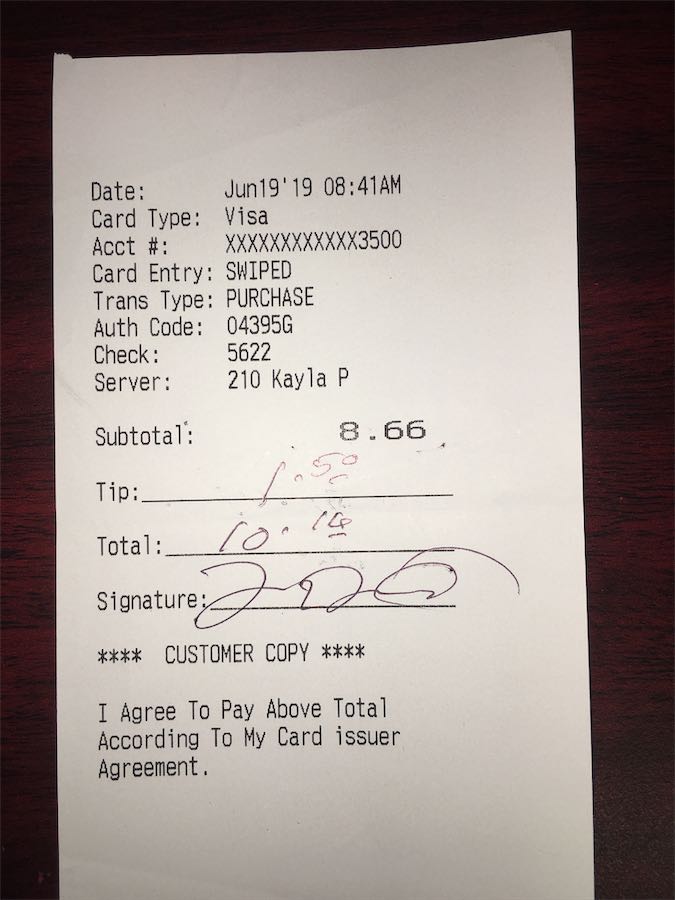 Date: Jun19'19 08:41AM
Card Type: Visa
Acct #: XXXXXXXXXXXX3500
Card Entry: SWIPED
Trans Type: PURCHASE
Auth Code: 04395G
Check: 5622
Server: 210 Kayla P
Subtotal: 8.66
Tip: 1.50
Total: 10.16
Signature:
**** CUSTOMER COPY ****
I Agree To Pay Above Total
According To My Card issuer
Agreement.